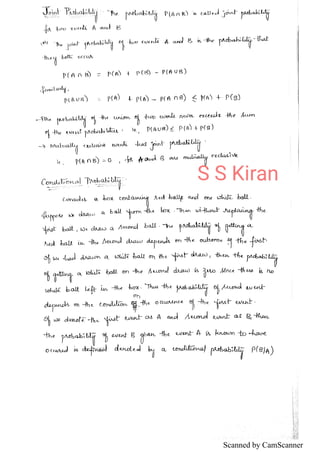 Joint Probability : The probability P(A∩B) is called joint probability
for two events A and B
The joint probability of two events A and B is the probability that
they both occurs
P(A∩B) = P(A) + P(B) - P(A∪B)
Similarly,
P(A∪B) = P(A) + P(B) - P(A∩B) ≤ P(A) + P(B)
→ The probability of the union of two events never exceeds the sum
of the event probabilities. P(A∪B) ≤ P(A) + P(B)
→ Mutually exclusive events has joint probability
P(A∩B) = 0, for A and B are mutually exclusive
S S Kiran
Conditional Probability :
Consider a box containing red balls and one white ball.
Suppose we draw a ball from the box. Then without replacing the
first ball, we draw a second ball. The probability of getting a
red ball in the second draw depends on the outcome of the first.
If we had drawn a white ball on the first draw, then the probability
of getting a white ball on the second draw is zero since there is no
white ball left in the box. Thus the probability of second event
depends on the condition on the occurence of the first event.
If we denote the first event as A and second event as B, then
the probability of event B given the event A is known to have
occured is defined denoted by a conditional probability P(B/A)
Scanned by CamScanner